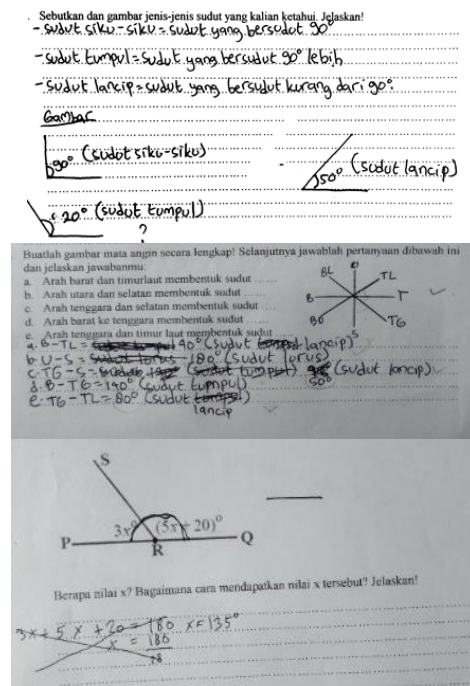 Sebutkan dan gambar jenis-jenis sudut yang kalian ketahui. Jelaskan!
- sudut siku-siku = sudut yang bersudut 90°
- sudut tumpul = sudut yang bersudut 90° lebih
- sudut lancip = sudut yang bersudut kurang dari 90°.
Gambar
90° (sudut siku-siku)
50° (sudut lancip)
120° (sudut tumpul)
?
Buatlah gambar mata angin secara lengkap! Selanjutnya jawablah pertanyaan dibawah ini
dan jelaskan jawabanmu:
a. Arah barat dan timurlaut membentuk sudut ......
b. Arah utara dan selatan membentuk sudut ......
c. Arah tenggara dan selatan membentuk sudut ....
d. Arah barat ke tenggara membentuk sudut ......
e. Arah tenggara dan timur laut membentuk sudut ......
BL TL
B T
BD TG
S
a. B-TL = 90° (sudut lancip)
b. U-S = 180° (sudut lurus)
c. TG-S = 50° (sudut lancip)
d. B-TG = 190° (sudut tumpul)
e. TG-TL = 80° (sudut lancip)
S
3x° (5x + 20)°
P R Q
Berapa nilai x? Bagaimana cara mendapatkan nilai x tersebut? Jelaskan!
3x + 5x + 20 = 180 x = 135°
x = 180